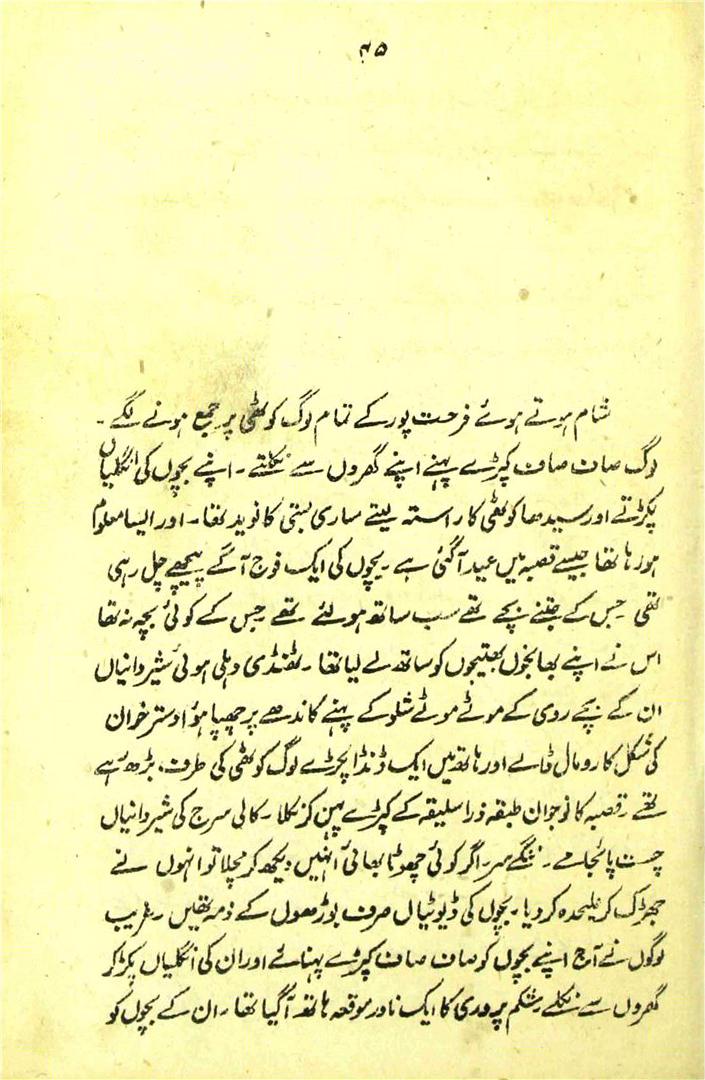 ۴۵
شام ہوتے ہوئے فرحت پور کے تمام لوگ کوٹھی پر جمع ہونے لگے۔
لوگ صاف صاف کپڑے پہنے اپنے گھروں سے نکلتے۔ اپنے بچوں کی انگلیاں
پکڑتے اور سیدھا کوٹھی کا راستہ لیتے ساری بستی کا نوید تھا۔ اور ایسا معلوم
ہو رہا تھا جیسے قصبہ میں عید آگئی ہے۔ بچوں کی ایک فوج آگے پیچھے چل رہی
تھی جس کے جتنے بچے تھے سب ساتھ ہو لئے تھے جس کے کوئی بچہ نہ تھا
اس نے اپنے بھانجوں بھتیجوں کو ساتھ لے لیا تھا۔ ٹھنڈی دہلی ہوئی شیردانیاں
ان کے نیچے روی کے موٹے موٹے شلوکے پہنے کاندھے پر چھپا ہوا دسترخوان
کی شکل کا رومال ڈالے اور ہاتھ میں ایک ڈنڈا پکڑے لوگ کوٹھی کی طرف بڑھ رہے
تھے۔ قصبہ کا نوجوان طبقہ ذرا سلیقہ کے کپڑے پہن کر نکلا۔ کالی سرج کی شیردانیاں
چست پائجامے۔ ننگے سر۔ اگر کوئی چھوٹا بھائی انہیں دیکھ کر مچلا تو انہوں نے
جھڑک کر علیحدہ کر دیا۔ بچوں کی ڈیوٹیاں صرف بوڑھوں کے ذمہ تھیں۔ غریب
لوگوں نے آج اپنے بچوں کو صاف صاف کپڑے پہنائے اور ان کی انگلیاں پکڑ کر
گھروں سے نکلے۔ شکم پروری کا ایک نادر موقعہ ہاتھ آگیا تھا۔ ان کے بچوں کو